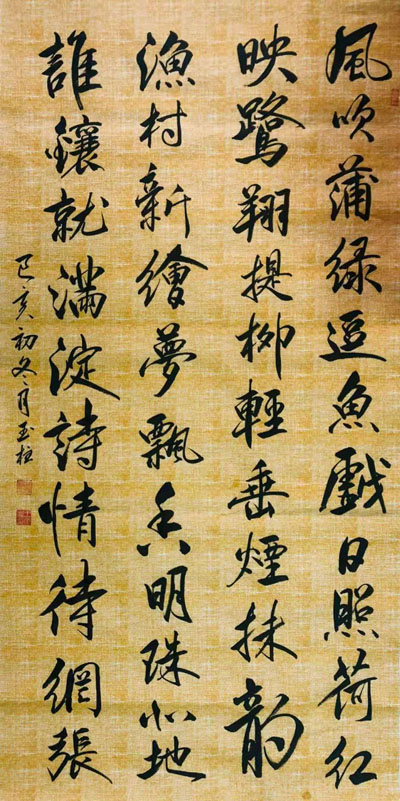 風吹蒲綠逗魚戲日照荷紅
映鷺翔提柳輕垂煙抹韵
漁村新繪夢飄香明珠此地
誰鑲就滿淀詩情待網張
己亥初冬月玉柱